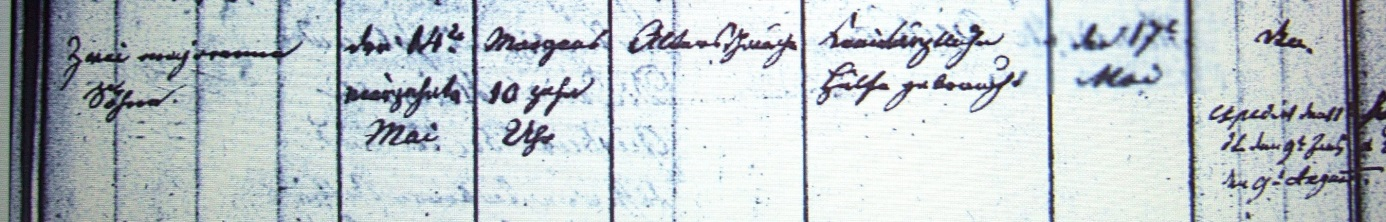 Zwei majorenne
Söhne.
den 14te
vierzehnte
Mai
Morgens
10 zehn
Uhr
Altersschwäche
Keine ärztliche
Hülfe gebraucht
den 17t
Mai
den 9t August